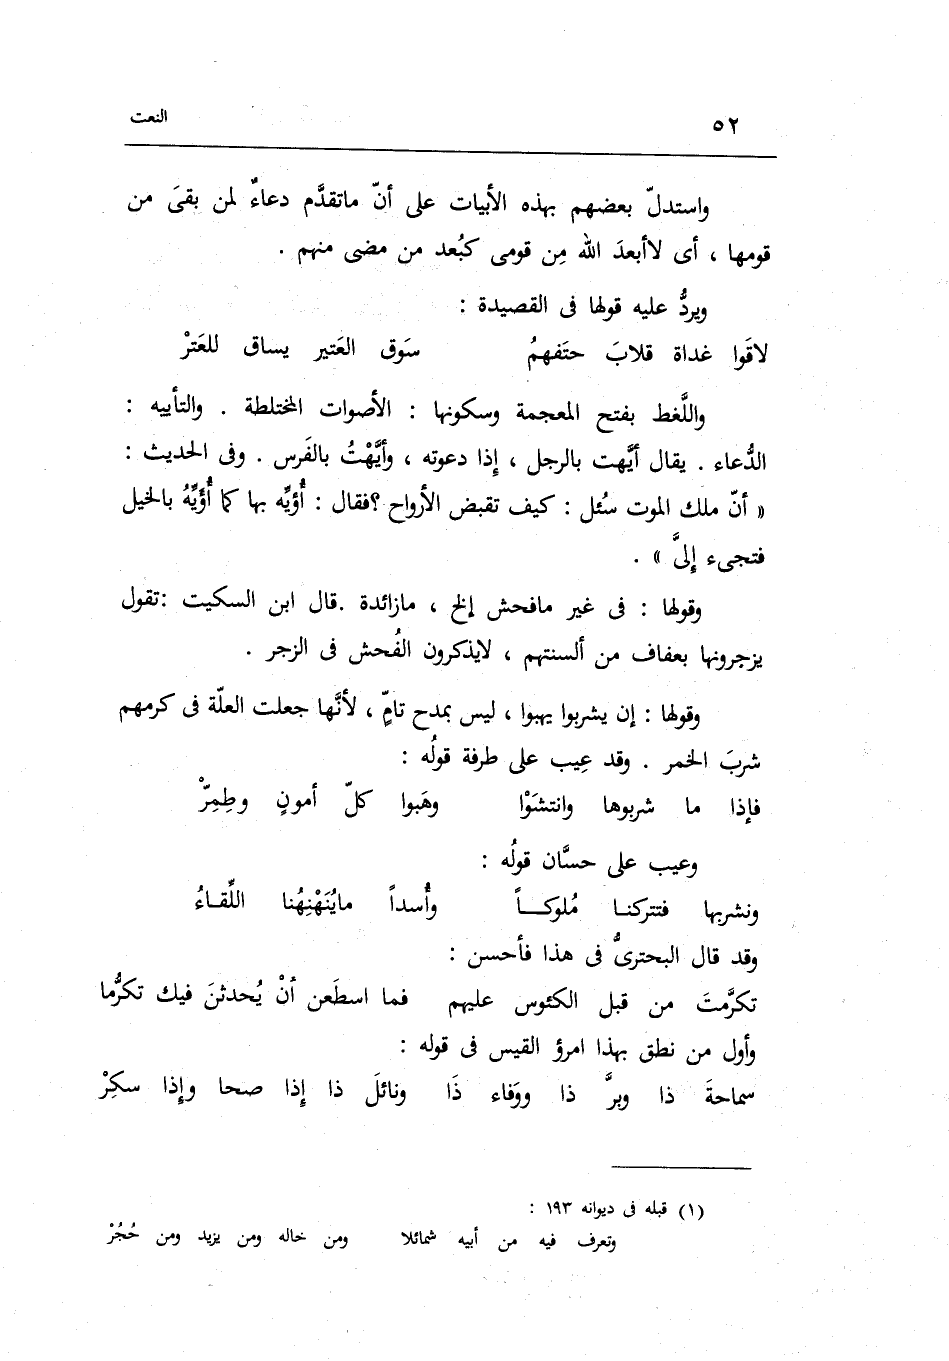 ٥٢ النعت
واستدلّ بعضهم بهذه الأبيات على أنّ ماتقدَّم دعاءٌ لمن بقىَ من
قومها ، أى لاأبعدَ الله مِن قومى كبُعد من مضى منهم .
ويردُّ عليه قولها فى القصيدة :
لاقَوا غداة قلابَ حتَفهمُ سَوق العَتير يساق للعَترْ
واللَّغط بفتح المعجمة وسكونها : الأصوات المختلطة . والتأييه :
الدُّعاء . يقال أيَّهت بالرجل ، إذا دعوته ، وأيَّهْتُ بالفَرس . وفى الحديث :
« أنّ ملك الموت سُئل : كيف تقبض الأرواح ؟ فقال : أُؤيِّه بها كما أُؤيِّهُ بالخيل
فتجىء إلىَّ » .
وقولها : فى غير مافحش إلخ ، مازائدة . قال ابن السكيت : تقول
يزجرونها بعفاف من ألسنتهم ، لايذكرون الفُحش فى الزجر .
وقولها : إن يشربوا يهبوا ، ليس بمدح تامٍّ ، لأنَّها جعلت العلّة فى كرمهم
شربَ الخمر . وقد عِيب على طرفة قولُه :
فإذا ما شربوها وانتشَوْا وهَبوا كلّ أمونٍ وطِمِرّْ
وعيب على حسَّان قولُه :
ونشربها فتتركنـا مُلوكـــاً وأُسداً مايُنَهْنِهُنا اللِّقـاءُ
وقد قال البحترىُّ فى هذا فأحسن :
تكرَّمتَ من قبل الكئوس عليهم فما اسطَعن أنْ يُحدثنَ فيك تكرُّما
وأول من نطق بهذا امرؤ القيس فى قوله :
سماحةَ ذا وبرَّ ذا ووَفاء ذَا ونائلَ ذا إذا صحا وإذا سكِرْ
(١) قبله فى ديوانه ١٩٣ :
وتعرف فيه من أبيه شمائلا ومن خاله ومن يزيد ومن حُجُرْ